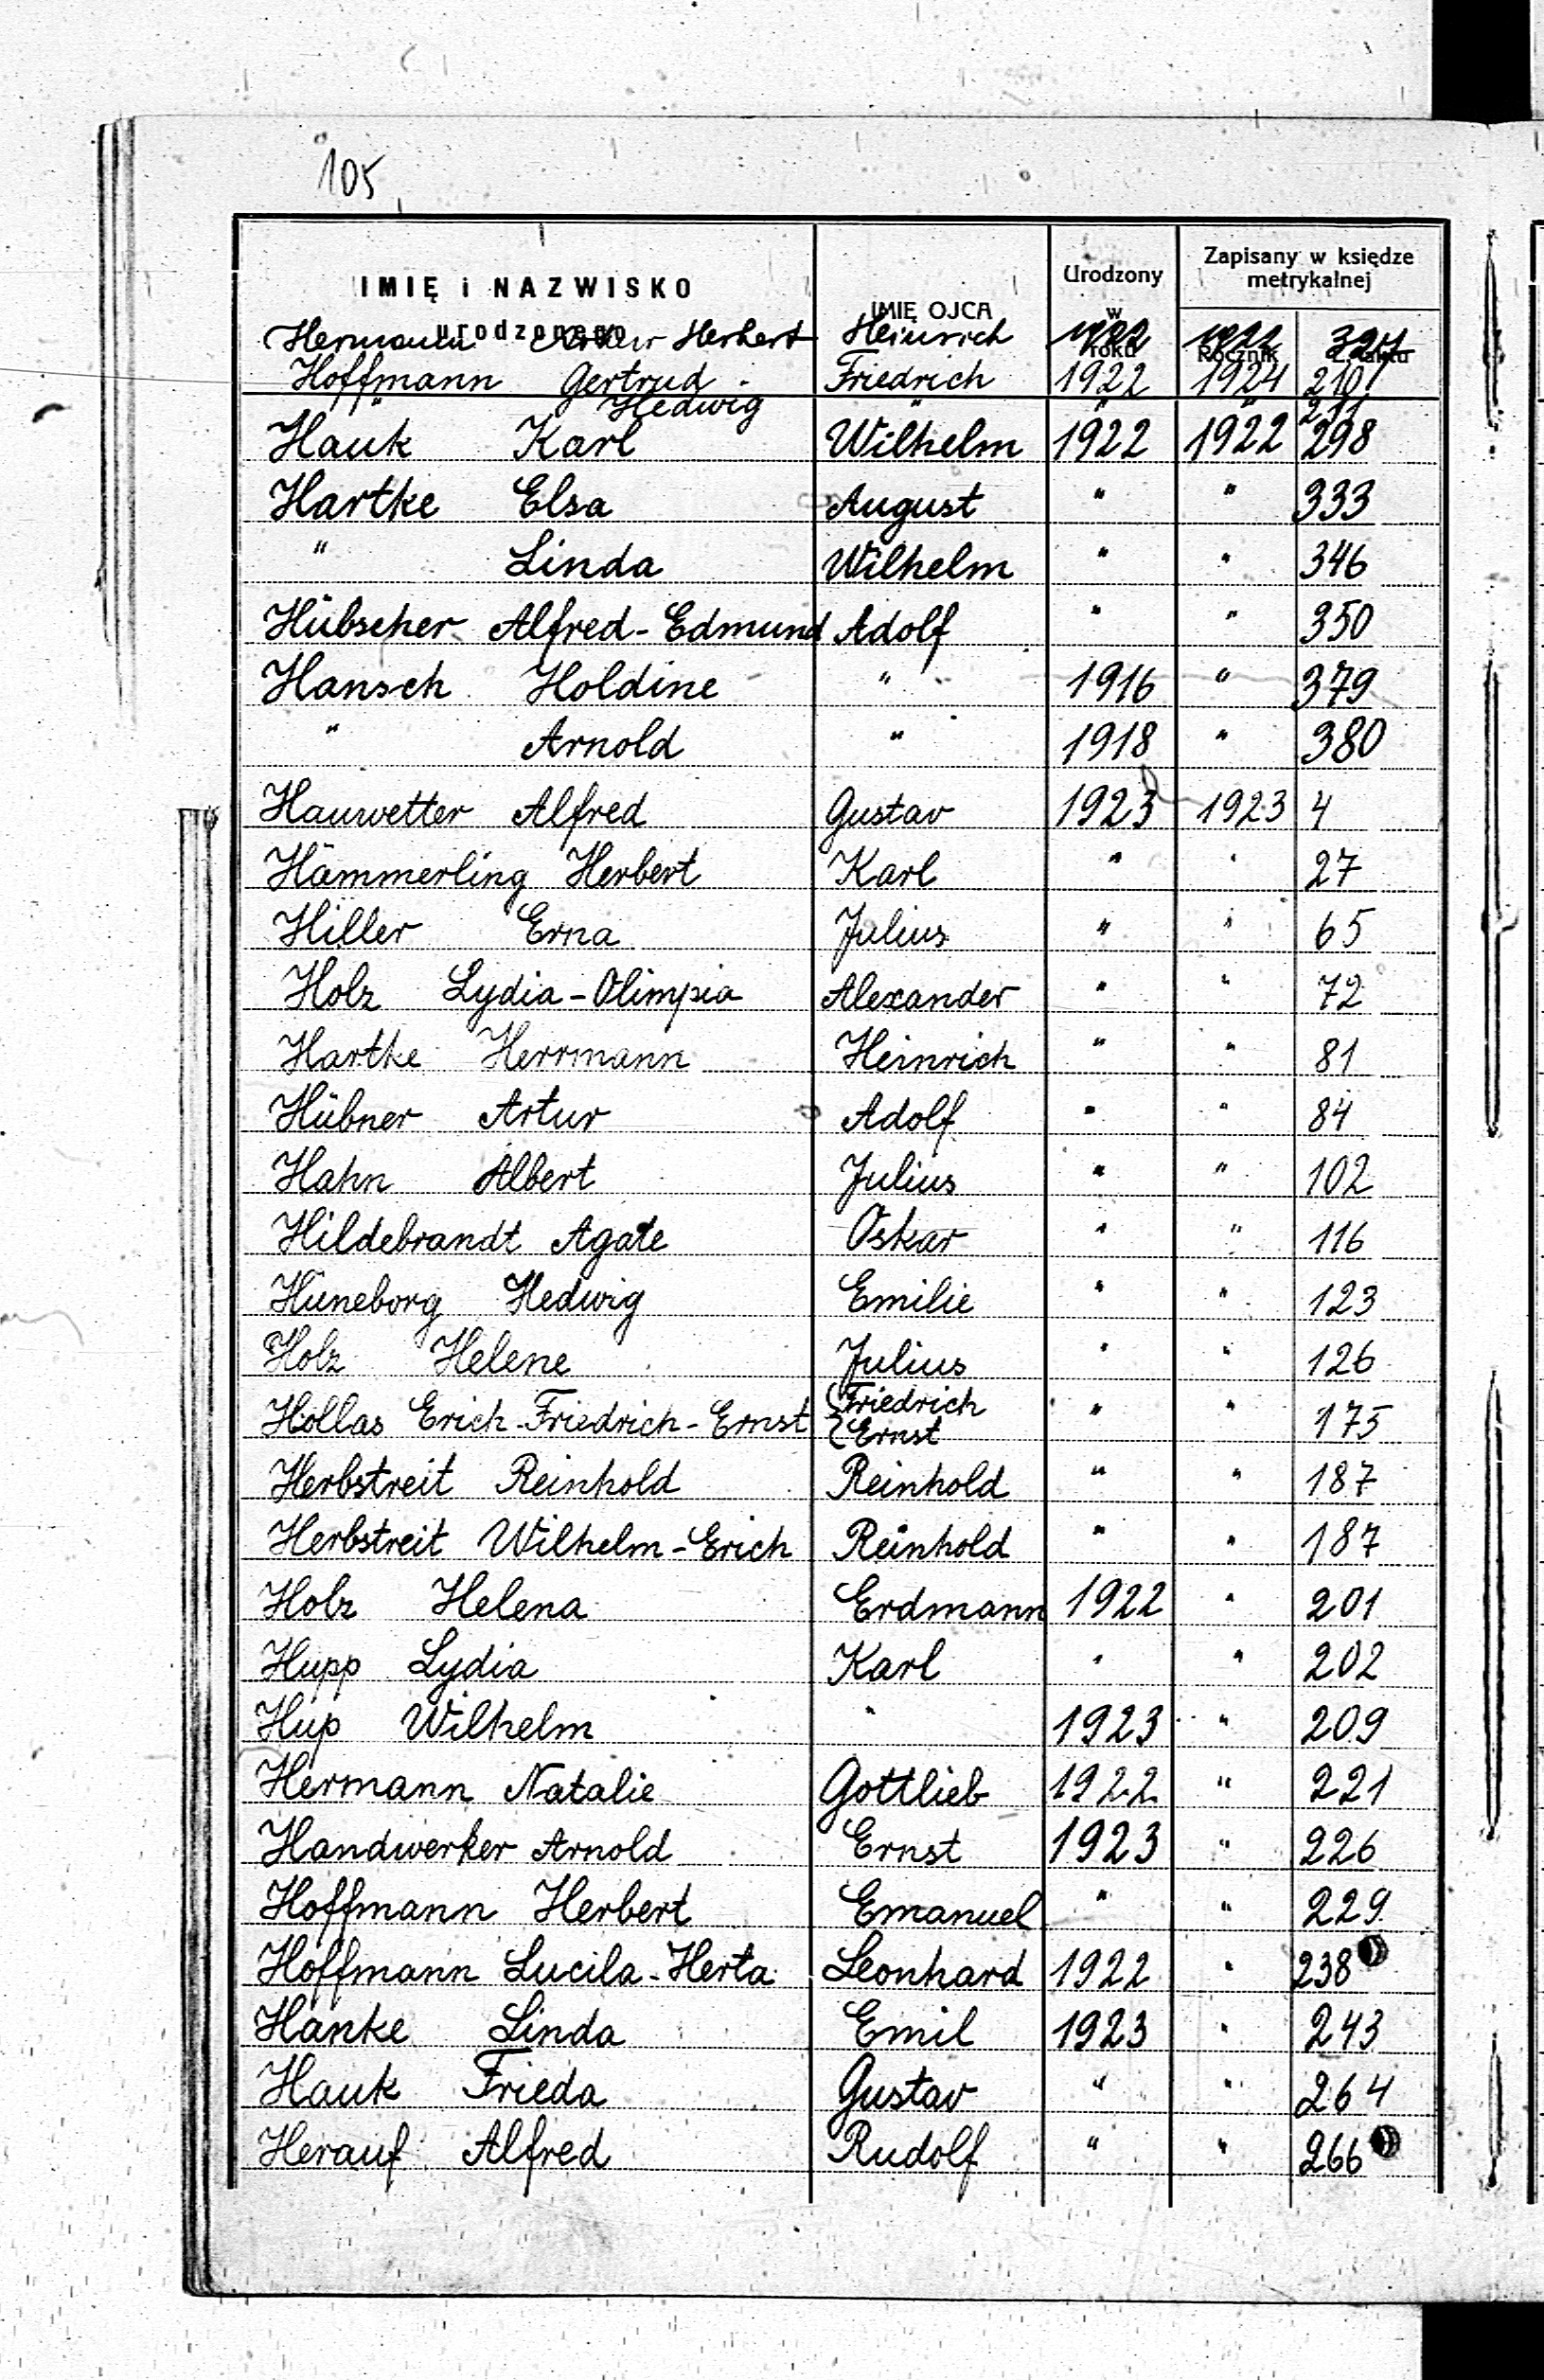 105
IMIĘ i NAZWISKO urodzonego IMIĘ OJCA Urodzony w roku Zapisany w księdze metrykalnej Rocznik L. aktu
Hermann Artur Herbert Heinrich 1922 1922 324
Hoffmann Gertrud Friedrich 1922 1924 210
" Hedwig " " " 211
Hauk Karl Wilhelm 1922 1922 298
Hartke Elsa August " " 333
" Linda Wilhelm " " 346
Hübscher Alfred-Edmund Adolf " " 350
Hansch Holdine " 1916 " 379
" Arnold " 1918 " 380
Hauwetter Alfred Gustav 1923 1923 4
Hämmerling Herbert Karl " " 27
Hiller Erna Julius " " 65
Holz Lydia-Olimpia Alexander " " 72
Hartke Herrmann Heinrich " " 81
Hübner Artur Adolf " " 84
Hahn Albert Julius " " 102
Hildebrandt Agate Oskar " " 116
Hüneborg Hedwig Emilie " " 123
Holz Helene Julius " " 126
Hollas Erich-Friedrich-Ernst {Friedrich Ernst " " 175
Herbstreit Reinhold Reinhold " " 187
Herbstreit Wilhelm-Erich Reinhold " " 187
Holz Helena Erdmann 1922 " 201
Hupp Lydia Karl " " 202
Hup Wilhelm " 1923 " 209
Hermann Natalie Gottlieb 1922 " 221
Handwerker Arnold Ernst 1923 " 226
Hoffmann Herbert Emanuel " " 229
Hoffmann Lucila-Herta Leonhard 1922 " 238
Hanke Linda Emil 1923 " 243
Hauk Frieda Gustav " " 264
Herauf Alfred Rudolf " " 266